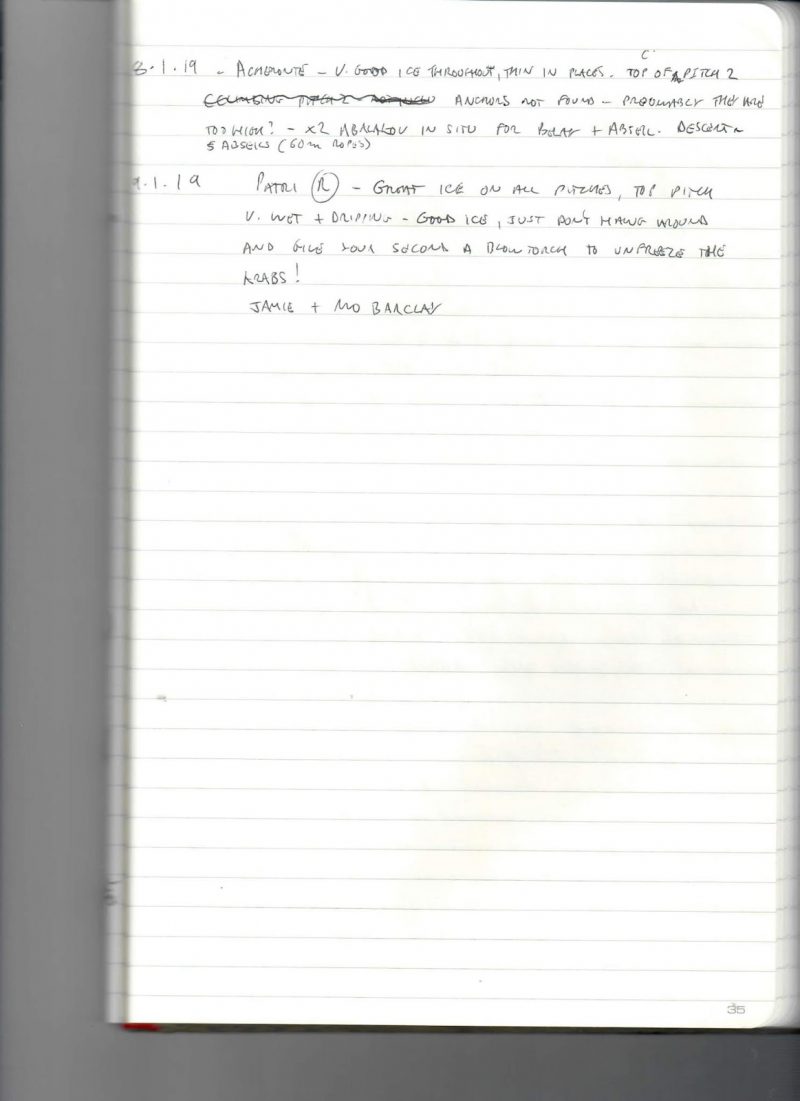 8.1.19 - ACHEROUTE - V. GOOD ICE THROUGHOUT, THIN IN PLACES. TOP OF PITCH 2
ANCHORS NOT FOUND - PRESUMABLY THEY ARE
TOO HIGH? - X2 ABALAKOV IN SITU FOR BELAY + ABSEIL. DESCENT ~
5 ABSEILS (60m ROPES)
9.1.19 PATRI (R) - GREAT ICE ON ALL PITCHES, TOP PITCH
V. WET + DRIPPING - GOOD ICE, JUST DON'T HANG AROUND
AND GIVE YOUR SECOND A BLOWTORCH TO UNFREEZE THE
KRABS!
JAMIE + MO BARCLAY
35